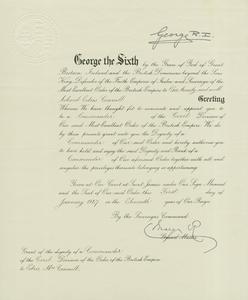 George R.I.
George the Sixth by the Grace of God of Great
Britain, Ireland and the British Dominions beyond the Seas
King, Defender of the Faith, Emperor of India and Sovereign of the
Most Excellent Order of the British Empire to Our trusty and well
Greeting
Whereas We have thought fit to nominate and appoint you to
be a Commander of the Civil Division of
Our said Most Excellent Order of the British Empire We do
by these presents grant unto you the Dignity of a
Commander of Our said Order and hereby authorise you
to have hold and enjoy the said Dignity and Rank of a
Commander of Our aforesaid Order together with all and
singular the privileges thereunto belonging or appertaining.
Given at Our Court at Saint James under Our Sign Manual
and the Seal of Our said Order this First day of
January 1947 in the Eleventh year of Our Reign.
By the Sovereign's Command.
Mary R
Grand Master.
Grant of the dignity of a Commander
of the Civil Division of the Order of the British Empire
to